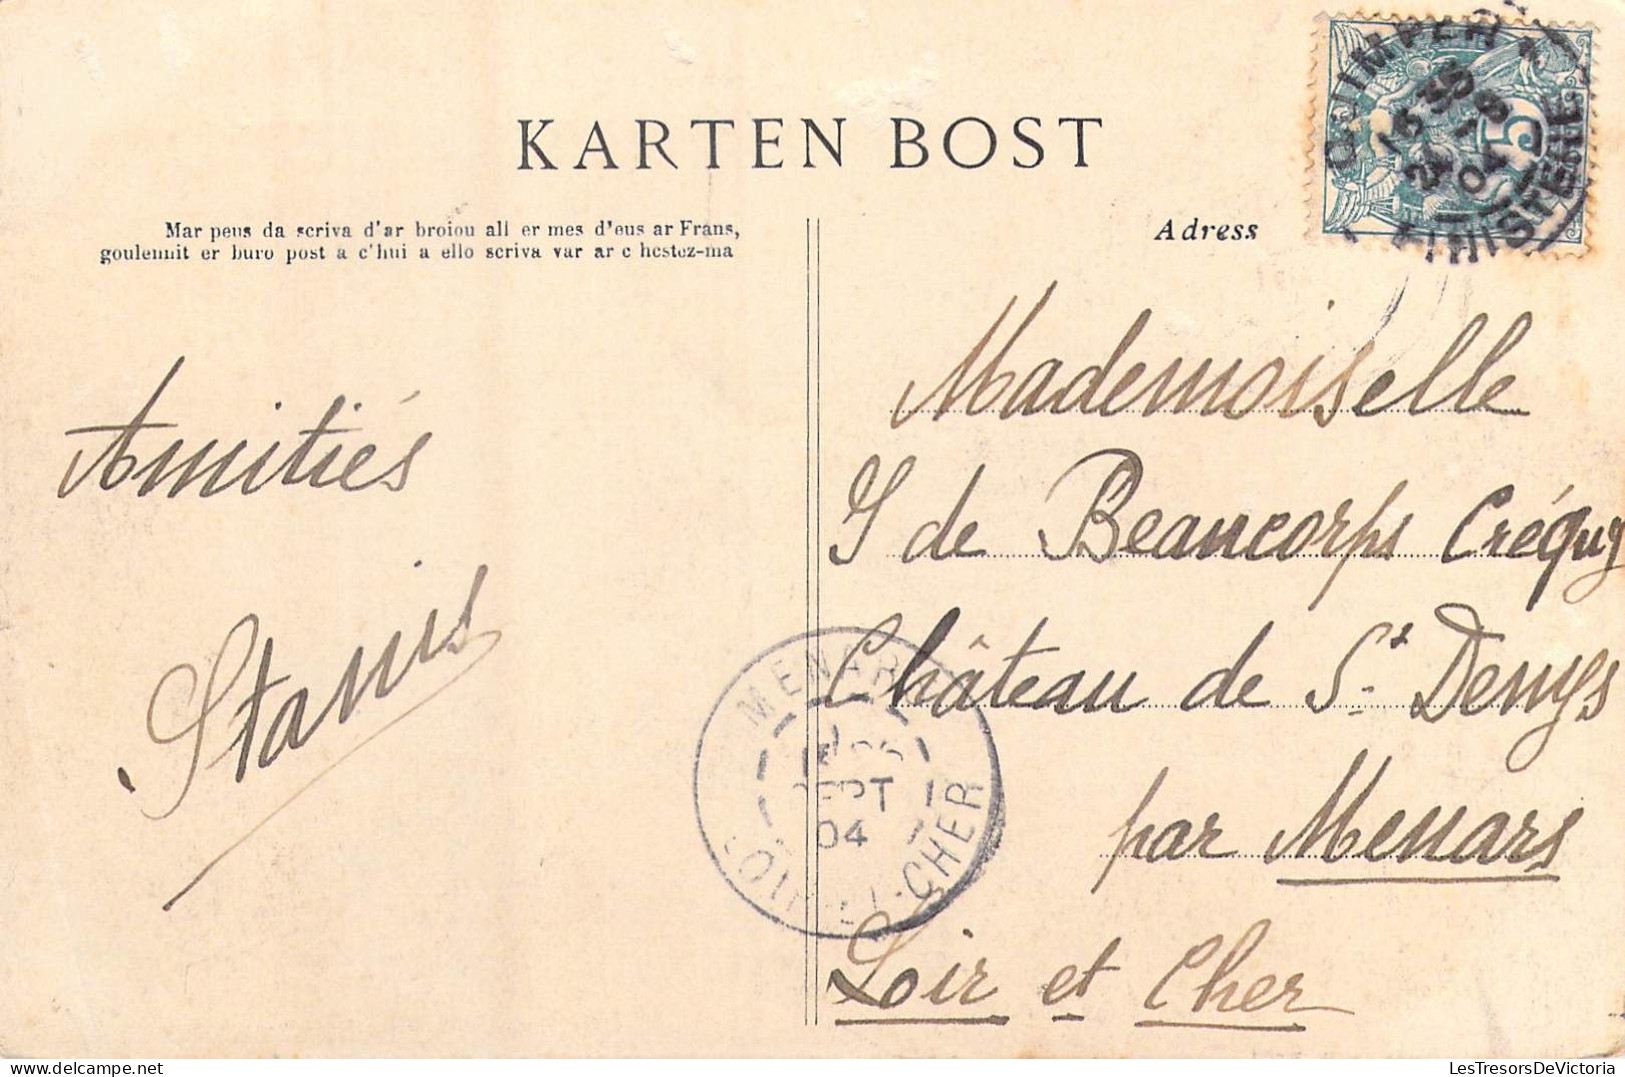 KARTEN BOST
Mar peus da scriva d'ar broiou all er mes d'eus ar Frans,
goulennit er buro post a c'hui a ello scriva var ar c hostez-ma
Adress
QUIMPER
FINISTERE
04
5
Amitiés
Stanis
Mademoiselle
Y de Beaucorps Créquy
Château de St Denys
par Menars
Loir et Cher
MENARS
SEPT
04
LOIR-ET-CHER
LesTresorsDeVictoria
www.delcampe.net